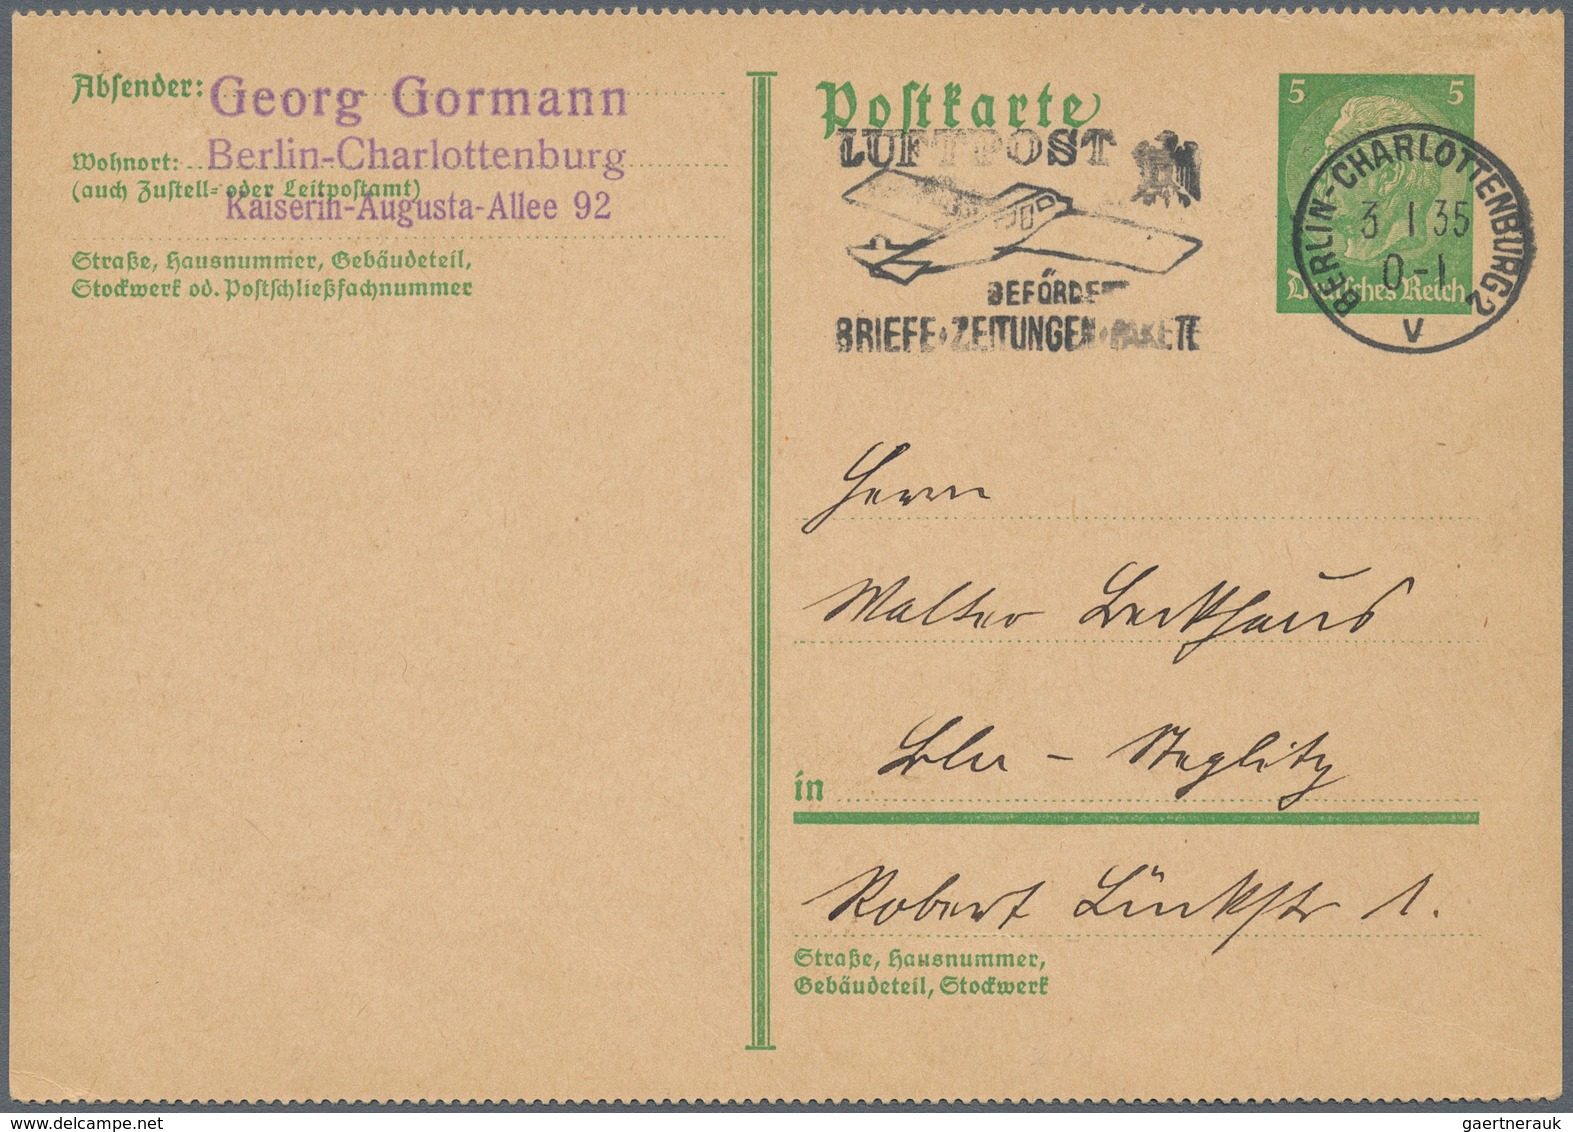 Absender: Georg Gormann
Wohnort: Berlin-Charlottenburg
(auch Zustell- oder Leitpostamt)
Kaiserin-Augusta-Allee 92
Straße, Hausnummer, Gebäudeteil,
Stockwerk od. Postschließfachnummer
Postkarte
LUFTPOST
BEFÖRDERT
BRIEFE·ZEITUNGEN·PAKETE
5 5
Deutsches Reich
BERLIN-CHARLOTTENBURG 2
3 1 35
0-1
V
Herrn
Walter Beckhaus
in Bln - Steglitz
Robert Lückstr 1.
Straße, Hausnummer,
Gebäudeteil, Stockwerk
delcampe.net
gaertnerauk